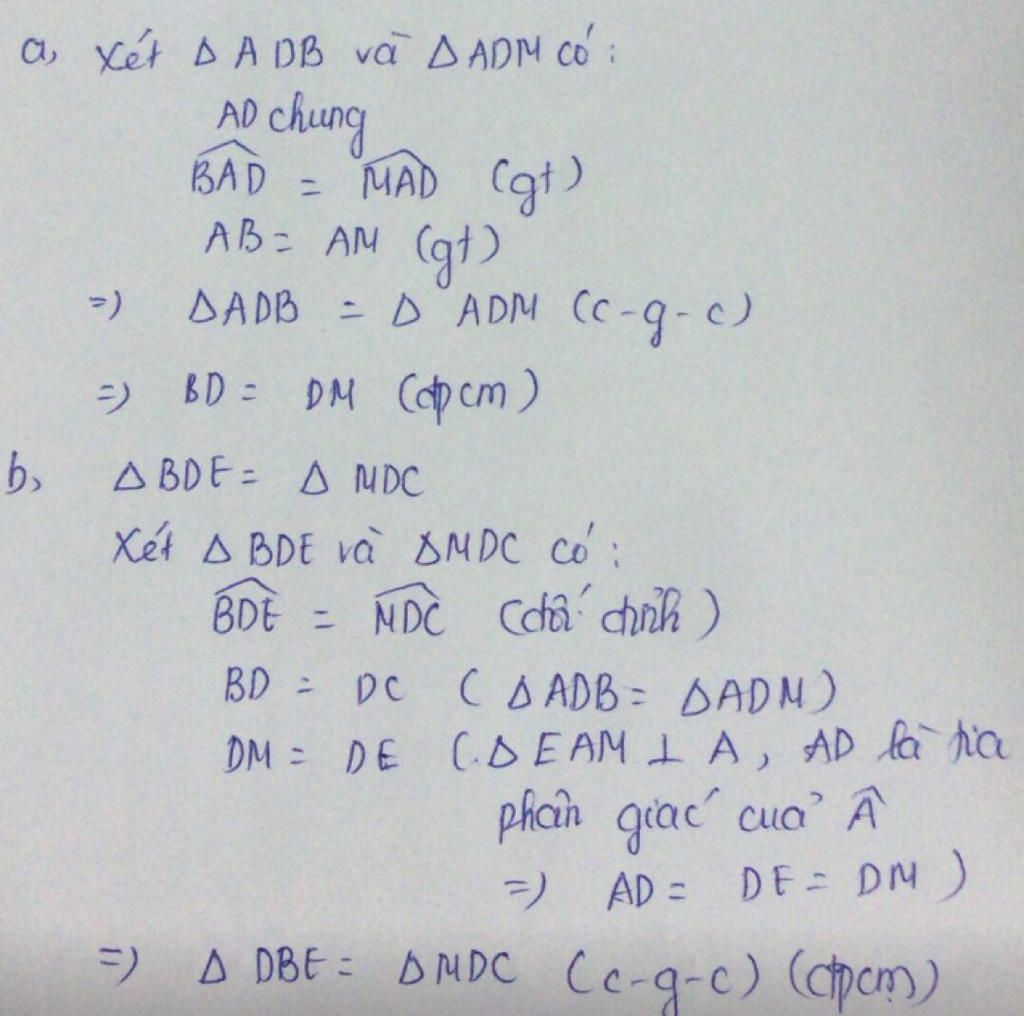 a, Xét Δ ADB và Δ ADM có:
AD chung
\widehat{BAD} = \widehat{MAD} (gt)
AB = AM (gt)
=) ΔADB = Δ ADM (c-g-c)
=) BD = DM (đpcm)
b, Δ BDE = Δ MDC
Xét Δ BDE và ΔMDC có:
\widehat{BDE} = \widehat{MDC} (đối đỉnh)
BD = DC (ΔADB = ΔADM)
DM = DE (ΔEAM ⊥ A, AD là tia
phân giác của \widehat{A}
=) AD = DE = DM)
=) Δ DBE = ΔMDC (c-g-c) (đpcm)